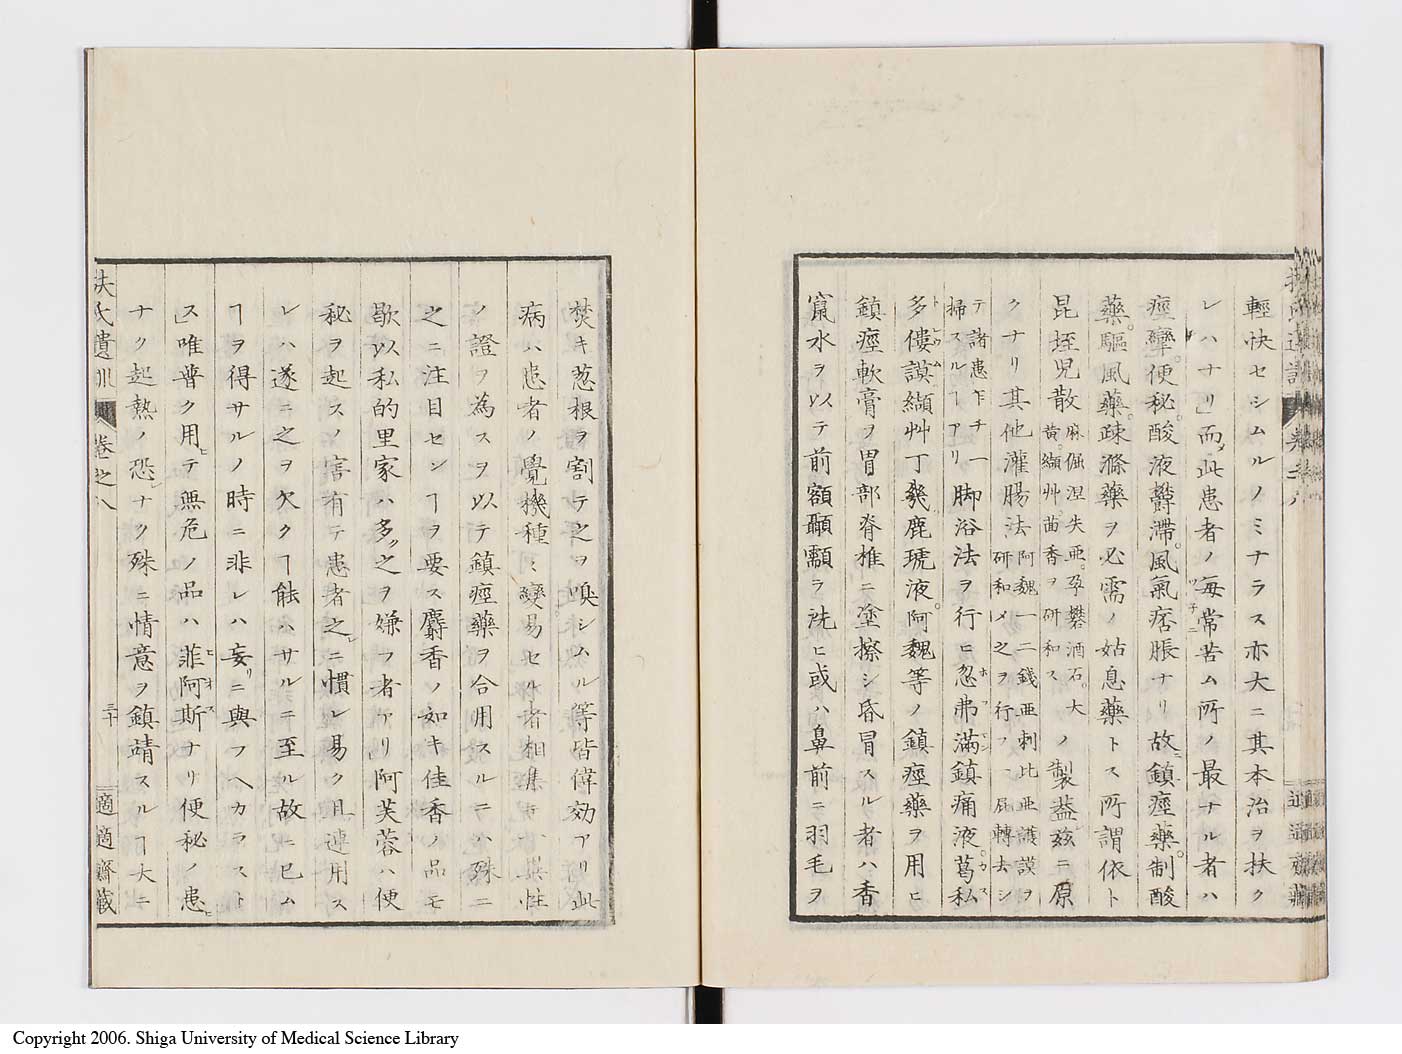 輕快セシムルノミナラス亦大ニ其本治ヲ扶ク
レハナリ」而乄此患者ノ毎常苦ム所ノ最ナル者ハ
痙攣。便秘。酸液欝滯。風氣痞脹ナリ故ニ鎮痙藥。制酸
藥。驅風藥。疎滌藥ヲ必需ノ姑息藥トス所謂依ト
昆垤児散麻倔涅失亜。孕礬酒石。大
黄。纈艸。茴香ヲ研和スノ製益玆ニ原
クナリ其他灌腸法阿魏一二錢亜刺比亜護謨ヲ
研和メ之ヲ行フ、屁轉去シ
テ諸患乍チ一
掃スルヿアリ脚浴法ヲ行ヒ忽弗満鎮痛液。葛私
多僂謨纈艸丁幾鹿琥液。阿魏等ノ鎮痙藥ヲ用ヒ
鎮痙軟膏ヲ胃部脊椎ニ塗擦シ昏冒スル者ハ香
竄水ヲ以テ前額顳顬ヲ洗ヒ或ハ鼻前ニ羽毛ヲ
焚キ葱根ヲ割テ之ヲ嗅シムル等皆偉効アリ此
病ハ患者ノ覺機種々變易セル者相集キ、異性
ノ證ヲ為スヲ以テ鎮痙藥ヲ合用スルニハ殊ニ
之ニ注目センヿヲ要ス麝香ノ如キ佳香ノ品モ
歇以私的里家ハ多ク之ヲ嫌フ者アリ」阿芙蓉ハ便
秘ヲ起スノ害有テ患者之ニ慣レ易ク且連用ス
レハ遂ニ之ヲ欠クヿ能ハサルニ至ル故ニ已ム
ヿヲ得サルノ時ニ非レハ妄リニ與フヘカラスト
ス」唯普ク用ヒテ無危ノ品ハ菲阿斯ナリ便秘ノ患ヒ
ナク起熱ノ恐レナク殊ニ情意ヲ鎮靖スルヿ大ニ
扶氏遺訓 卷之八 三十 適適齋藏